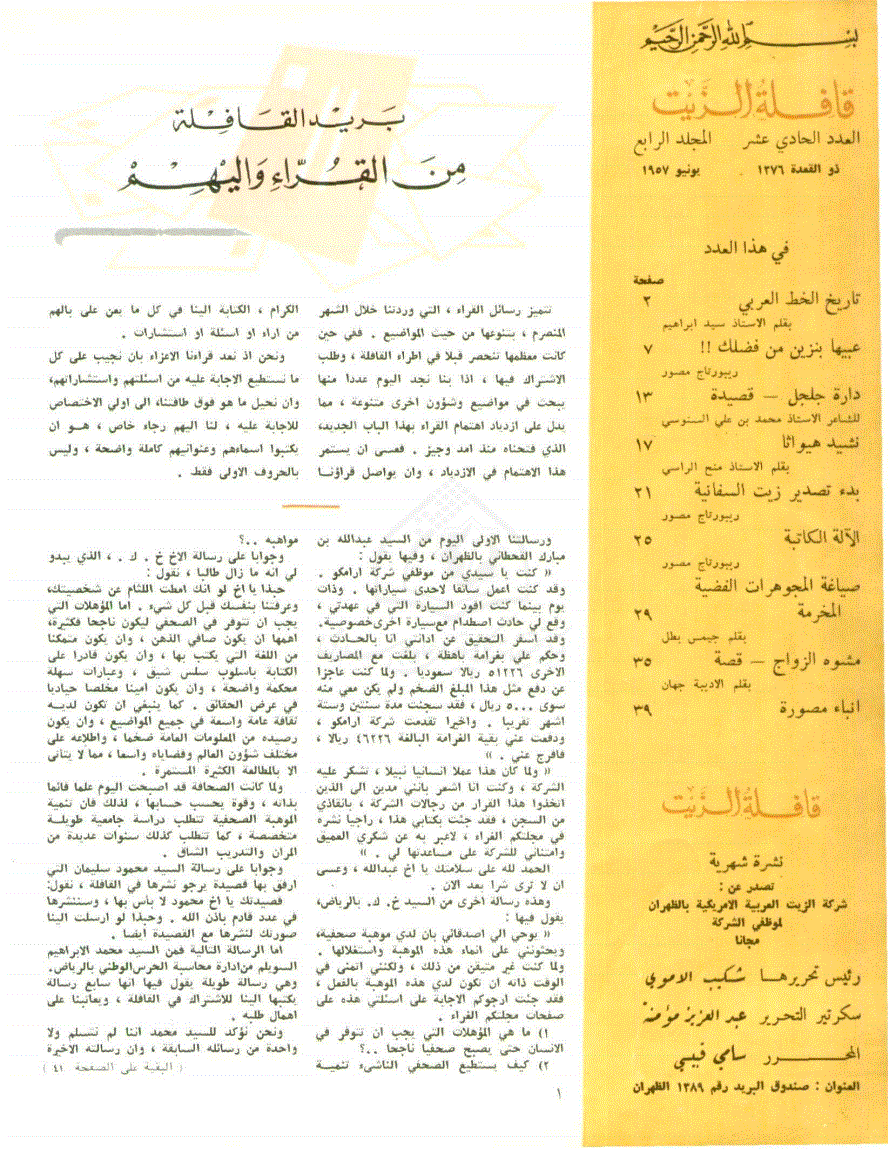 بسم الله الرحمن الرحيم
قافلة الزيت
العدد الحادي عشر المجلد الرابع
ذو القعدة ١٣٧٦ يونيو ١٩٥٧
في هذا العدد
صفحة
تاريخ الخط العربي ٢
بقلم الاستاذ سيد ابراهيم
عبيها بنزين من فضلك !! ٧
ريبورتاج مصور
دارة جلجل — قصيدة ١٣
للشاعر الاستاذ محمد بن علي السنوسي
نشيد هيواثا ١٧
بقلم الاستاذ منح الراسي
بدء تصدير زيت السفانية ٢١
ريبورتاج مصور
الآلة الكاتبة ٢٥
ريبورتاج مصور
صياغة المجوهرات الفضية
المخرمة ٢٩
بقلم جيمي بطل
مشوه الزواج — قصة ٣٥
بقلم الاديبة جهان
انباء مصورة ٣٩
قافلة الزيت
نشرة شهرية
تصدر عن :
شركة الزيت العربية الامريكية بالظهران
لموظفي الشركة
مجانا
رئيس تحريرها شكيب الاموي
سكرتير التحرير عبد العزيز مؤمنة
المحرر سامي فيبي
العنوان : صندوق البريد رقم ١٣٨٩ الظهران
بريد القافلة
من القراء واليهم
تتميز رسائل القراء ، التي وردتنا خلال الشهر
المنصرم ، بتنوعها من حيث المواضيع . ففي حين
كانت معظمها تنحصر قبلا في اطراء القافلة ، وطلب
الاشتراك فيها ، اذا بنا نجد اليوم عددا منها
يبحث في مواضيع وشؤون اخرى متنوعة ، مما
يدل على ازدياد اهتمام القراء بهذا الباب الجديد،
الذي فتحناه منذ امد وجيز . فعسى ان يستمر
هذا الاهتمام في الازدياد ، وان يواصل قراؤنا
الكرام ، الكتابة الينا في كل ما يعن على بالهم
من اراء او اسئلة او استشارات .
ونحن اذ نعد قراءنا الاعزاء بان نجيب على كل
ما نستطيع الاجابة عليه من اسئلتهم واستشاراتهم،
وان نحيل ما هو فوق طاقتنا، الى اولي الاختصاص
للاجابة عليه ، لنا اليهم رجاء خاص ، هو ان
يكتبوا اسماءهم وعنوانيهم كاملة واضحة ، وليس
بالحروف الاولى فقط .
ورسالتنا الاولى اليوم من السيد عبدالله بن
مبارك القحطاني بالظهران ، وفيها يقول :
« كنت يا سيدي من موظفي شركة ارامكو .
وقد كنت اعمل سائقا لاحدى سياراتها . وذات
يوم بينما كنت اقود السيارة التي في عهدتي ،
وقع لي حادث اصطدام مع سيارة اخرى خصوصية.
وقد اسفر التحقيق عن ادانتي انا بالحادث ،
وحكم علي بغرامة باهظة ، بلغت مع المصاريف
الاخرى ٥١٢٢٦ ريالا سعوديا . ولما كنت عاجزا
عن دفع مثل هذا المبلغ الضخم ولم يكن معي منه
سوى ٥٠٠٠ ريال ، فقد سجنت مدة سنتين وستة
اشهر تقريبا . واخيرا تقدمت شركة ارامكو ،
ودفعت عني بقية الغرامة البالغة ٤٦٢٢٦ ريالا ،
فافرج عني . »
« ولما كان هذا عملا انسانيا نبيلا ، تشكر عليه
الشركة ، وكنت انا اشعر بانني مدين الى الذين
اتخذوا هذا القرار من رجالات الشركة ، بانقاذي
من السجن ، فقد جئت بكتابي هذا ، راجيا نشره
في مجلتكم القراء ، لاعبر به عن شكري العميق
وامتناني للشركة على مساعدتها لي . »
الحمد لله على سلامتك يا اخ عبدالله ، وعسى
ان لا ترى شرا بعد الان .
وهذه رسالة اخرى من السيد خ. ك. بالرياض،
يقول فيها :
« يوحي الي اصدقائي بان لدي موهبة صحفية،
ويحثونني على انماء هذه الموهبة واستغلالها .
ولما كنت غير متيقن من ذلك ، ولكنني اتمنى في
الوقت ذاته ان تكون لدي هذه الموهبة بالفعل ،
فقد جئت ارجوكم الاجابة على اسئلتي هذه على
صفحات مجلتكم القراء .
١) ما هي المؤهلات التي يجب ان تتوفر في
الانسان حتى يصبح صحفيا ناجحا ..؟
٢) كيف يستطيع الصحفي الناشيء تنمية
مواهبه ..؟
وجوابا على رسالة الاخ خ . ك . ، الذي يبدو
لي انه ما زال طالبا ، نقول :
حبذا يا اخ لو انك امطت اللثام عن شخصيتك،
وعرفتنا بنفسك قبل كل شيء . اما المؤهلات التي
يجب ان تتوفر في الصحفي ليكون ناجحا فكثيرة،
اهمها ان يكون صافي الذهن ، وان يكون متمكنا
من اللغة التي يكتب بها ، وان يكون قادرا على
الكتابة باسلوب سلس شيق ، وعبارات سهلة
محكمة واضحة ، وان يكون امينا مخلصا حياديا
في عرض الحقائق . كما ينبغي ان تكون لديه
ثقافة عامة واسعة في جميع المواضيع ، وان يكون
رصيده من المعلومات العامة ضخما ، واطلاعه على
مختلف شؤون العالم وقضاياه واسعا ، مما لا يتأتى
الا بالمطالعة الكثيرة المستمرة .
ولما كانت الصحافة قد اصبحت اليوم علما قائما
بذاته ، وقوة يحسب حسابها ، لذلك فان تنمية
الموهبة الصحفية تتطلب دراسة جامعية طويلة
متخصصة ، كما تتطلب كذلك سنوات عديدة من
المران والتدريب الشاق .
وجوابا على رسالة السيد محمود سليمان التي
ارفق بها قصيدة يرجو نشرها في القافلة ، نقول:
قصيدتك يا اخ محمود لا بأس بها ، وسننشرها
في عدد قادم باذن الله . وحبذا لو ارسلت الينا
صورتك لنشرها مع القصيدة ايضا .
اما الرسالة التالية فمن السيد محمد الابراهيم
السويلم من ادارة محاسبة الحرس الوطني بالرياض.
وهي رسالة طويلة يقول فيها انها سابع رسالة
يكتبها الينا للاشتراك في القافلة ، ويعاتبنا على
اهمال طلبه .
ونحن نؤكد للسيد محمد اننا لم نتسلم ولا
واحدة من رسائله السابقة ، وان رسالته الاخيرة
( البقية على الصفحة ٤١ )
١